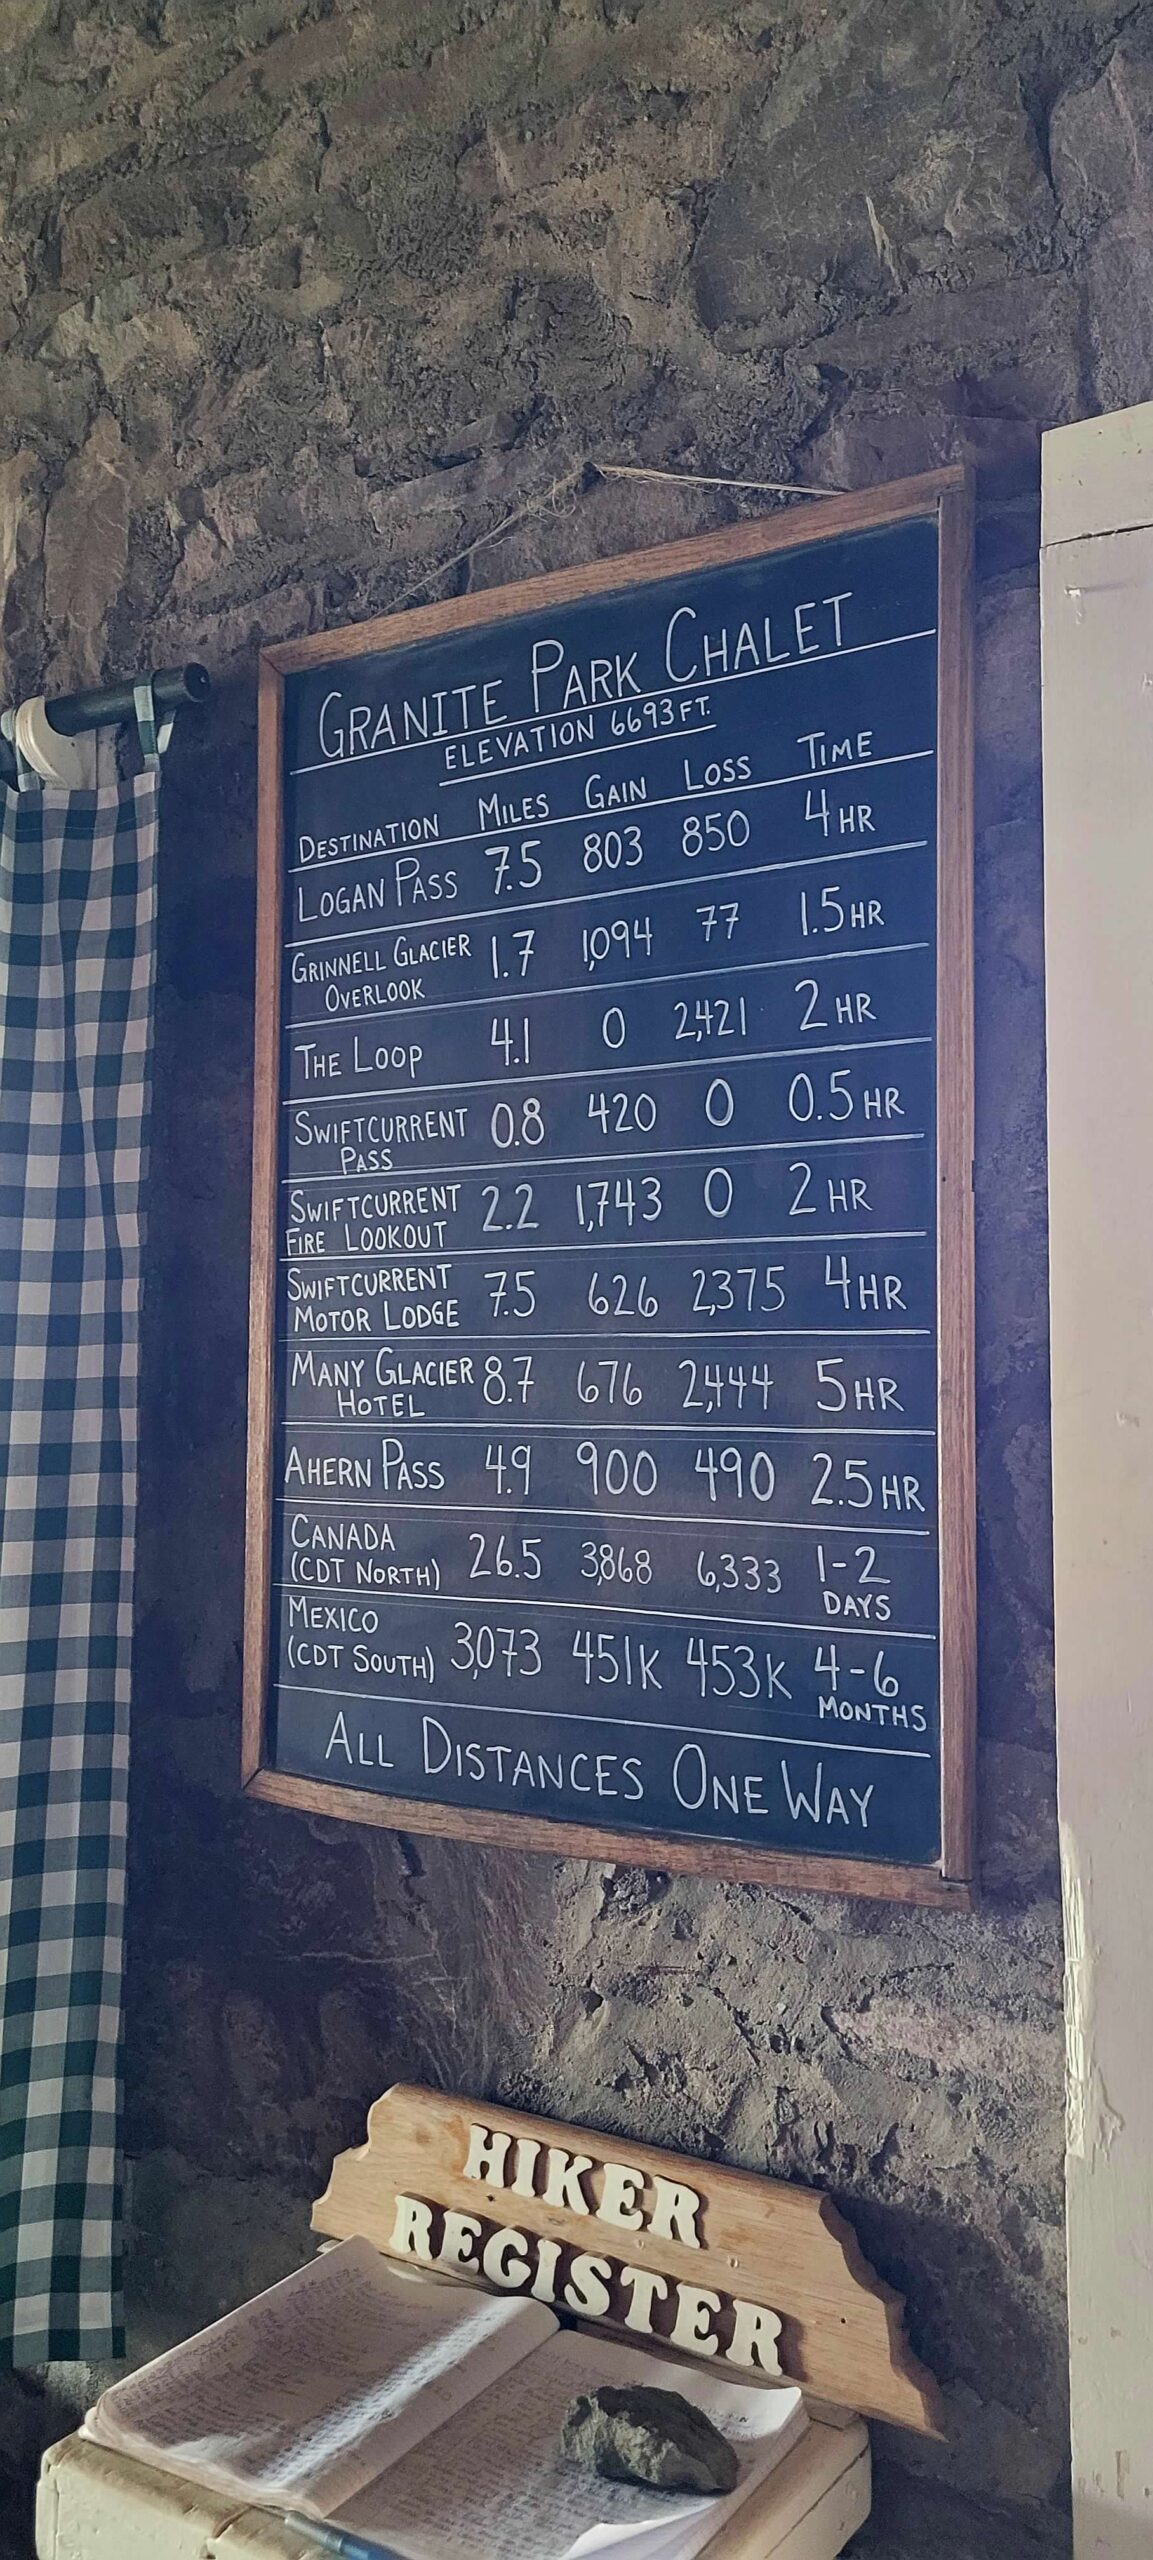 GRANITE PARK CHALET
ELEVATION 6693 FT.
DESTINATION MILES GAIN LOSS TIME
LOGAN PASS 7.5 803 850 4 HR
GRINNELL GLACIER OVERLOOK 1.7 1,094 77 1.5 HR
THE LOOP 4.1 0 2,421 2 HR
SWIFTCURRENT PASS 0.8 420 0 0.5 HR
SWIFTCURRENT FIRE LOOKOUT 2.2 1,743 0 2 HR
SWIFTCURRENT MOTOR LODGE 7.5 626 2,375 4 HR
MANY GLACIER HOTEL 8.7 676 2,444 5 HR
AHERN PASS 4.9 900 490 2.5 HR
CANADA (CDT NORTH) 26.5 3,868 6,333 1-2 DAYS
MEXICO (CDT SOUTH) 3,073 451K 453K 4-6 MONTHS
ALL DISTANCES ONE WAY
HIKER
REGISTER